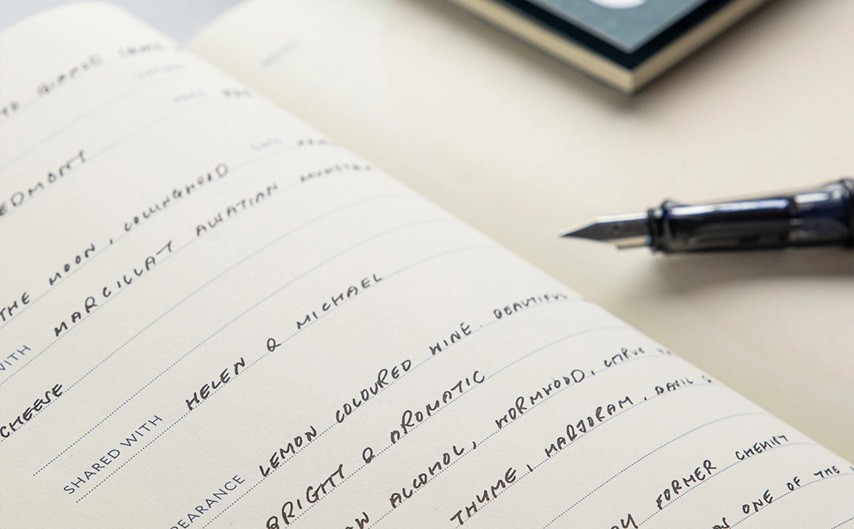 TO
EDMONT
DATE
THE MOON, COLLINGWOOD
WITH MARCILLAT ALSATIAN
CHEESE
SHARED WITH HELEN & MICHAEL
PEARANCE LEMON COLOURED WINE. BEAUTIFUL
BRIGHT & AROMATIC
W ALCOHOL, WORMWOOD, CITRUS
THYME, MARJORAM,
BY FORMER CHEMIST
ONE OF THE